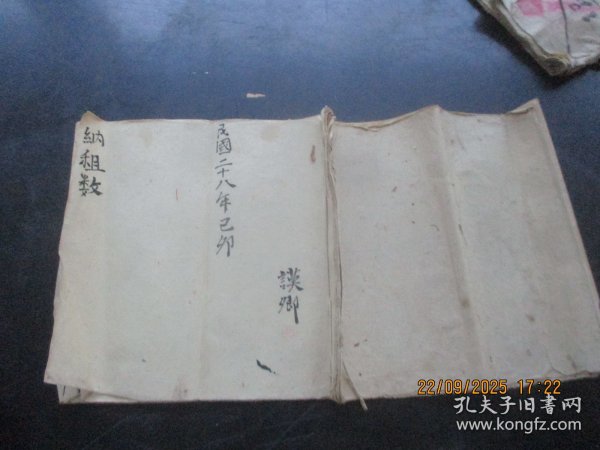 納租数
民國二十八年己卯
謨卿
22/09/2025 17:22
孔夫子旧書网
www.kongfz.com